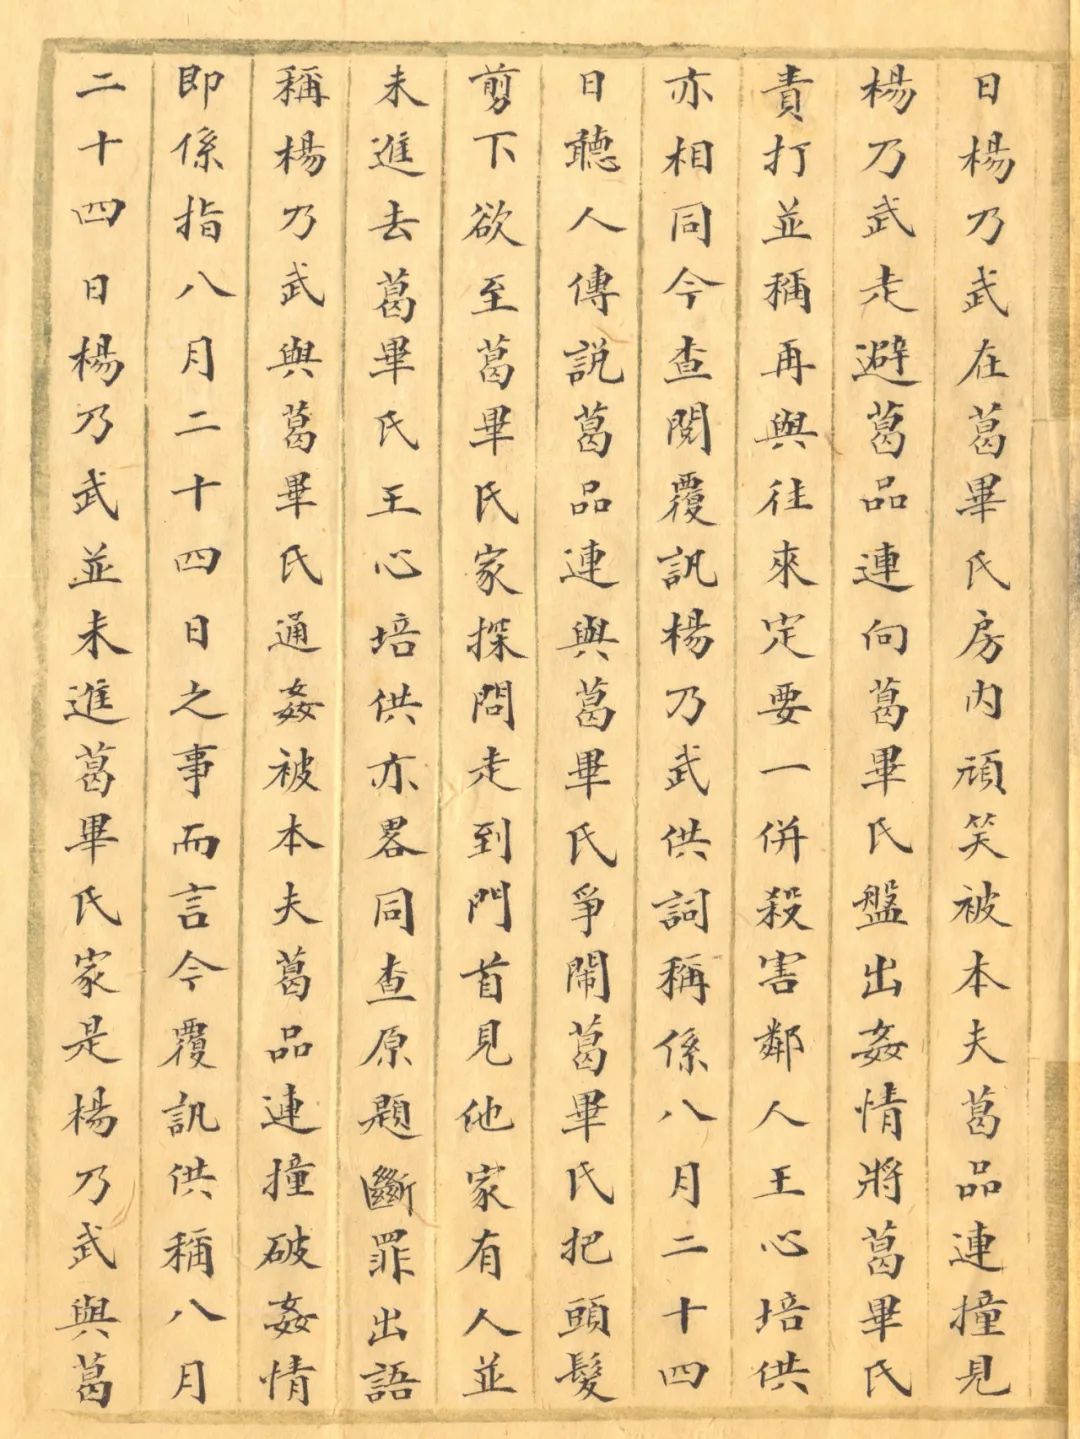 日楊乃武在葛畢氏房內頑笑被本夫葛品連撞見
楊乃武走避葛品連向葛畢氏盤出姦情將葛畢氏
責打並稱再與往來定要一併殺害鄰人王心培供
亦相同今查閱覆訊楊乃武供詞稱係八月二十四
日聽人傳說葛品連與葛畢氏爭鬧葛畢氏把頭髮
剪下欲至葛畢氏家探問走到門首見他家有人並
未進去葛畢氏王心培供亦畧同查原題斷罪出語
稱楊乃武與葛畢氏通姦被本夫葛品連撞破姦情
即係指八月二十四日之事而言今覆訊供稱八月
二十四日楊乃武並未進葛畢氏家是楊乃武與葛